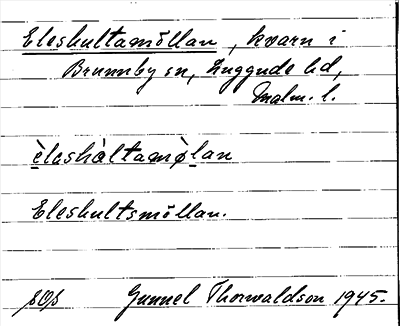 Eleshultamöllan, kvarn i
Brunnby sn, Luggude hd,
Malm. l.
èleshàltamø̀lan
Eleshultsmöllan.
Gunnel Thorwaldson 1945.